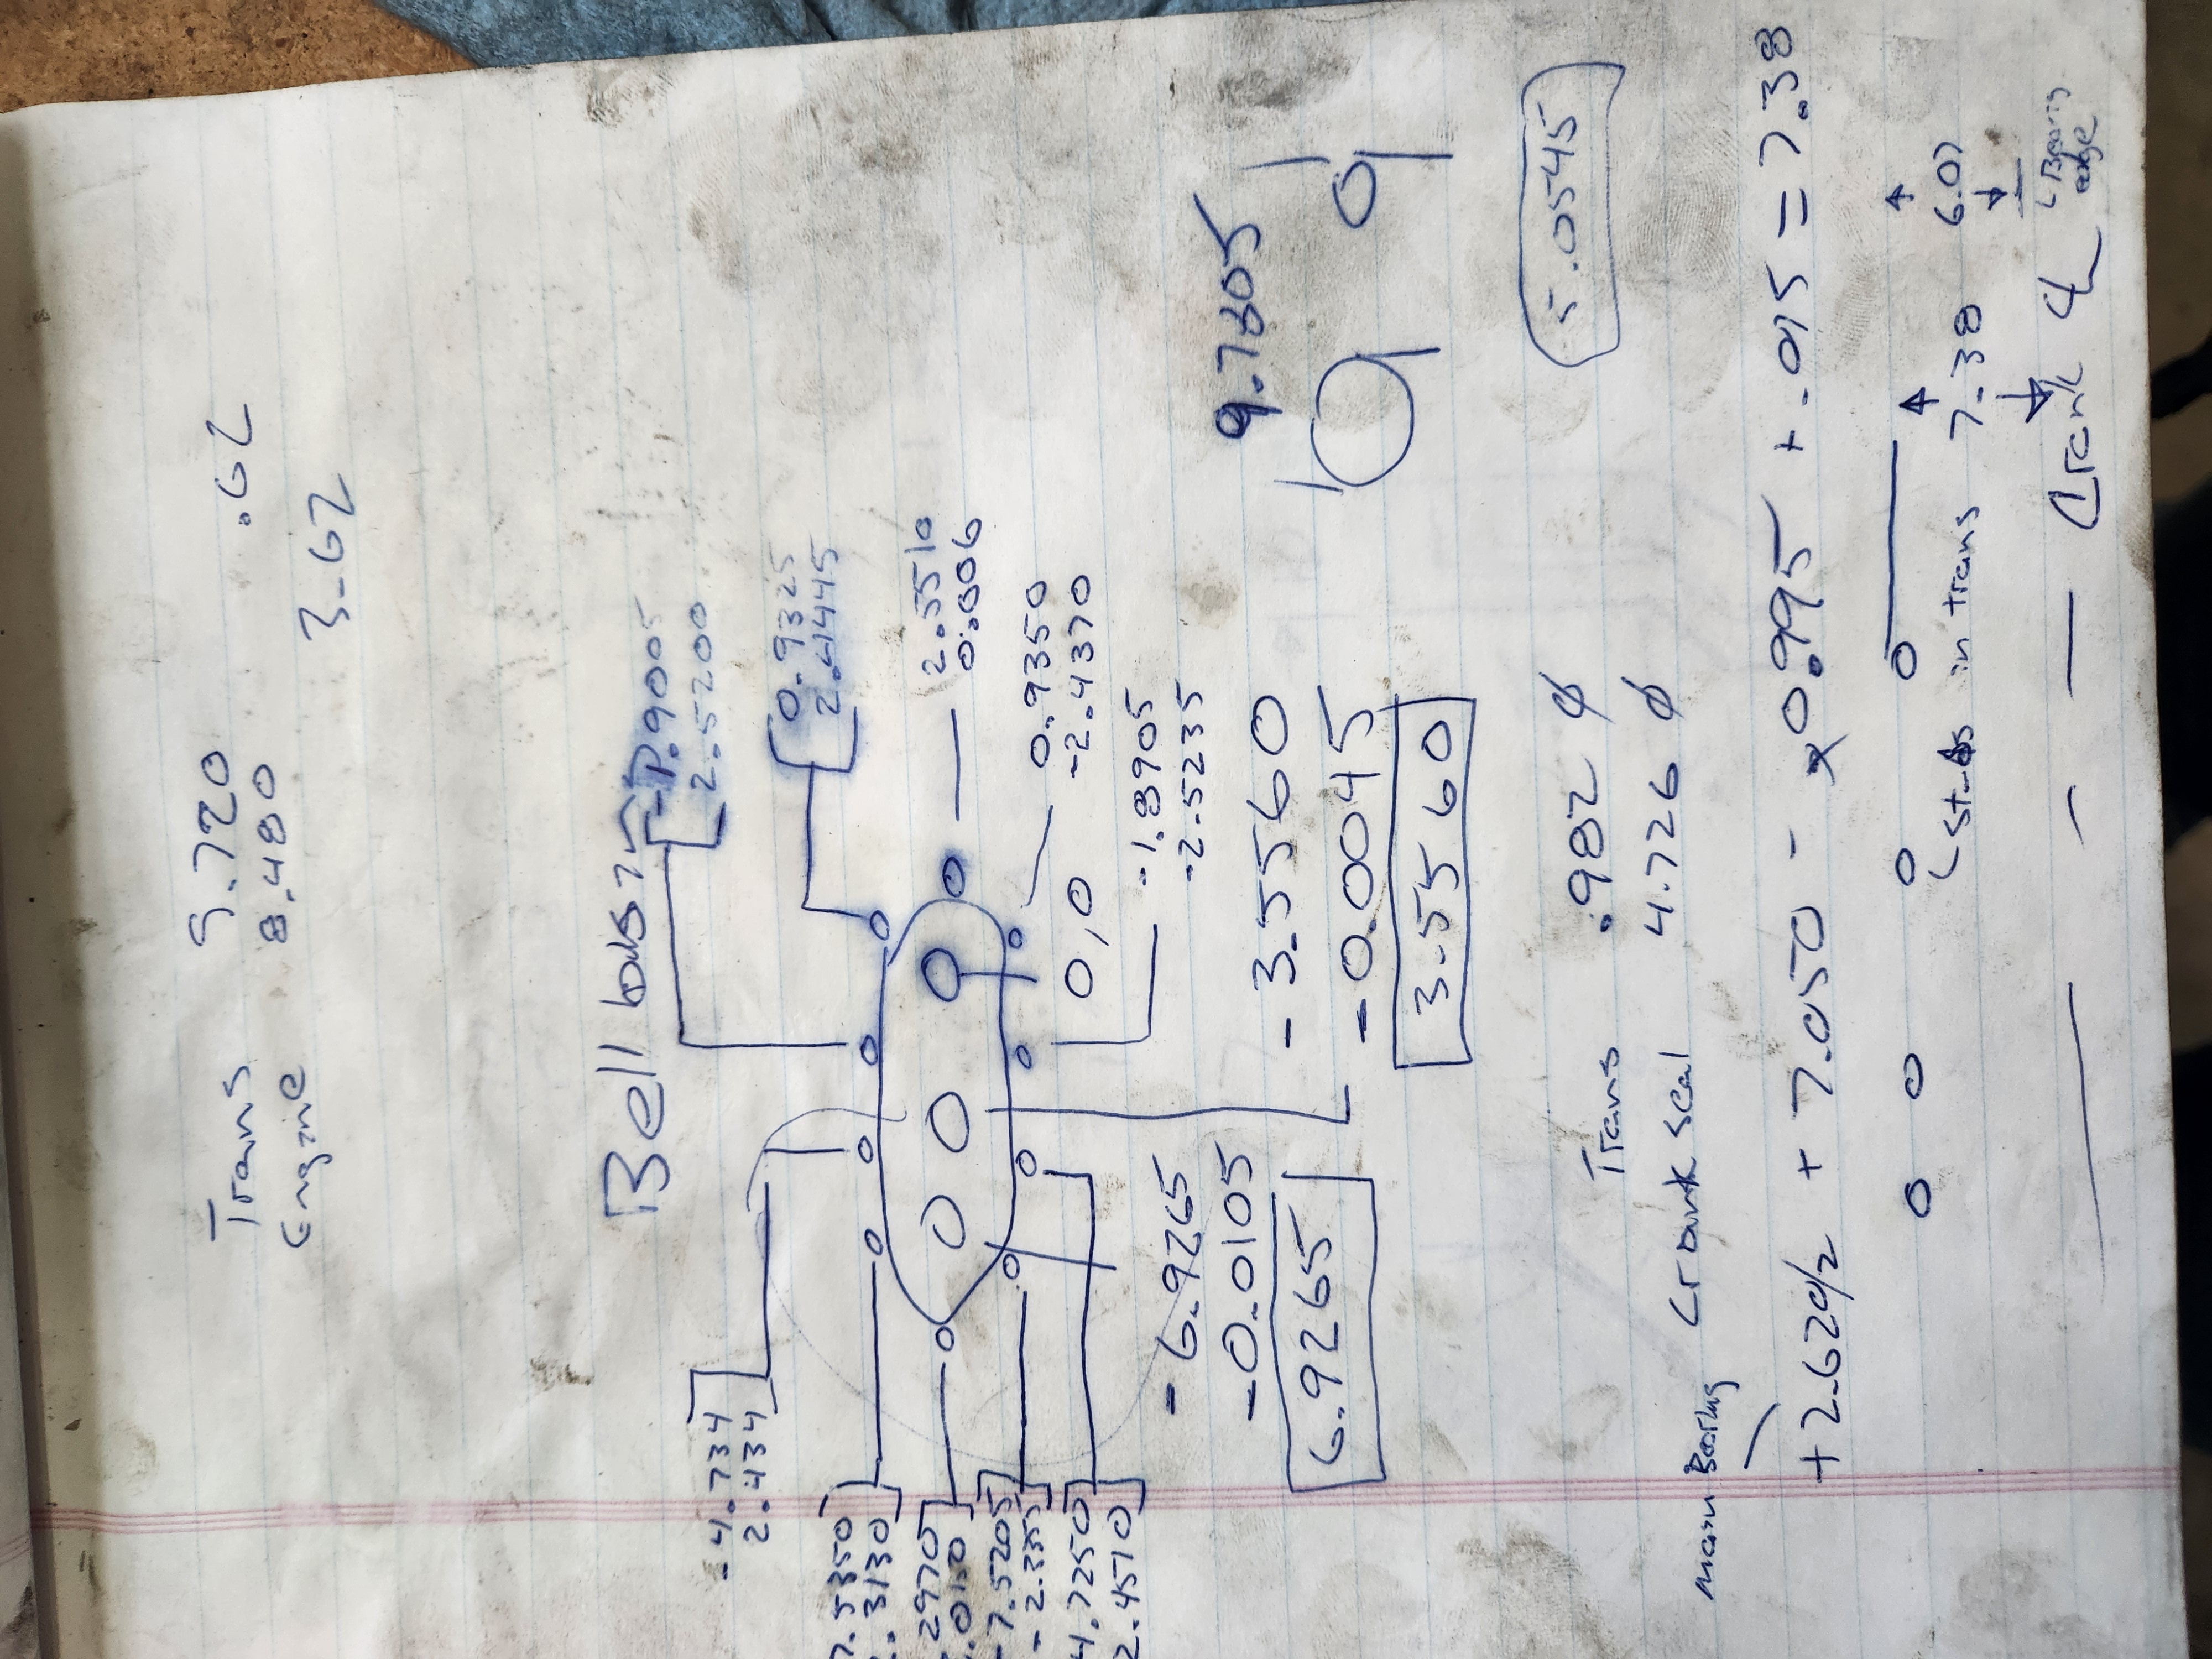 Trans 5.720 .62
Engine 8.480
3.62
Bell housing
-1.9005
2.5200
0.9325
2.4445
-4.734
2.434
2.5510
0.006
0.9350
-2.4370
0,0
-1.8905
-2.5235
7.5350
.3130
.2970
.0130
-7.5205
-2.335
4.7250
2.4570
-6.9265
-0.0105
6.9265
-3.5560
-0.0045
3.5560
9.7805
5.0545
Trans .982 ϕ
Crank seal 4.726 ϕ
main Bearing
+2.620/2 + 7.050 - 0.995 + .015 = 7.38
Studs in trans 7.38 6.07
Crank ℄
Bearing
edge